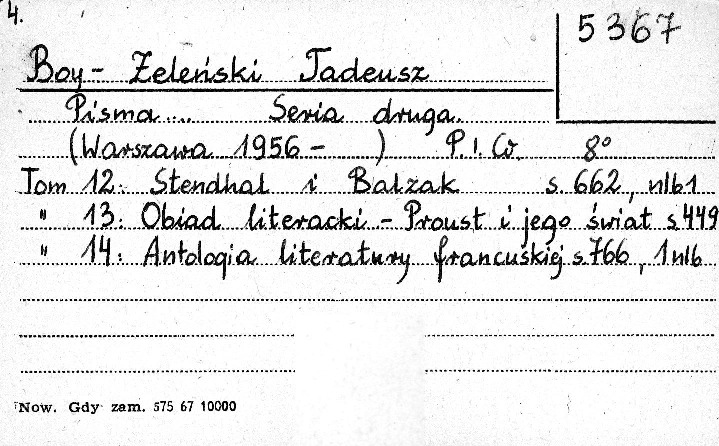 4.
5367
Boy - Żeleński Tadeusz
Pisma.... Seria druga.
(Warszawa 1956 - ) P.I.W. 8°
Tom 12: Stendhal i Balzak s. 662, nlb1
" 13: Obiad literacki - Proust i jego świat s 449
" 14: Antologia literatury francuskiej s. 766, 1 nlb
Now. Gdy zam. 575 67 10000